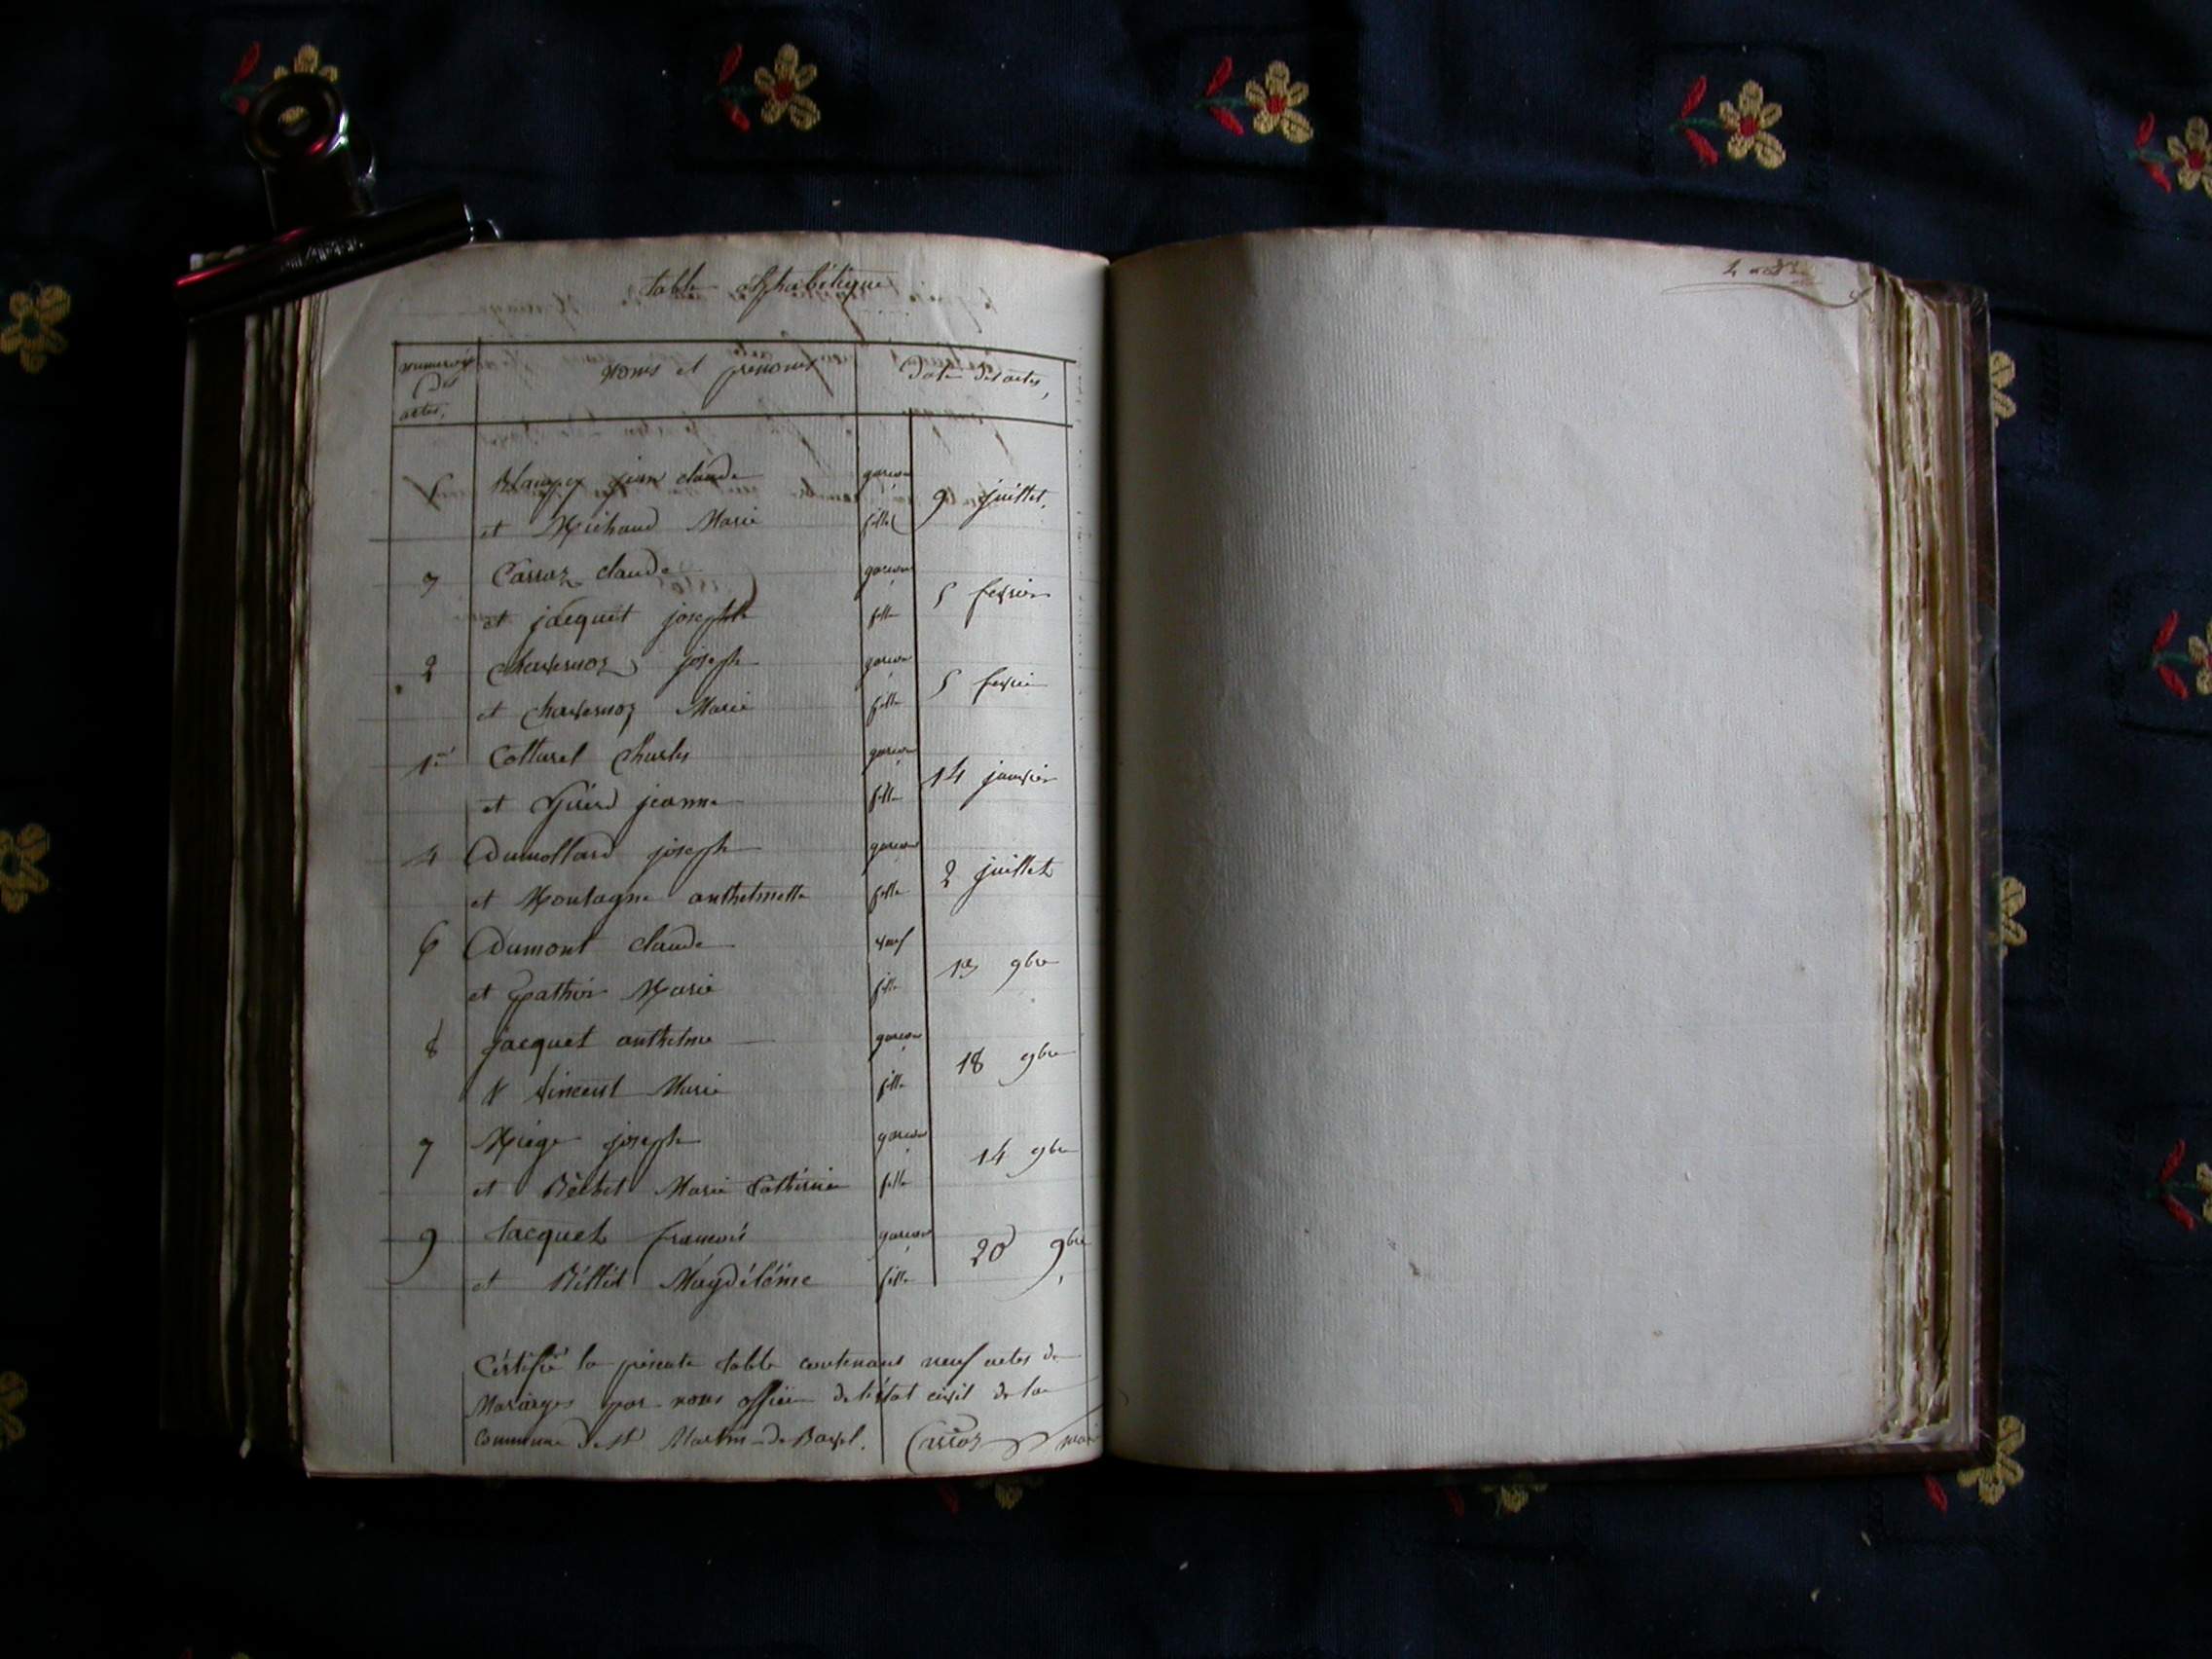 table alphabétique
numeros des actes,
noms et prenoms
Date des actes,
5 jean claude garçon 9 juillet.
et Michaud Marie fille
3 Carroz claude garçon 5 fevrier
et jacquet josephte fille
2 Chavernoz joseph garçon 5 fevrier
et Chavernoz Marie fille
1er Cottarel Charles garçon 14 janvier
et jeanne fille
4 Dumollard joseph garçon 2 juillet
et Montagne anthelmette fille
6 Dumont claude veuf 13 9bre
et Marie fille
8 jacquet anthelme garçon 18 9bre
& Vincent Marie fille
7 Miége joseph garçon 14 9bre
et Béchet Marie Catherine fille
9 Jacquet francois garçon 20 9bre
et Billiet Magdéléine fille
Certifié la présente table contenant neuf actes de
Mariages par nous officier de l'état civil de la
Commune de St Martin-de-Bavel. Carroz maire